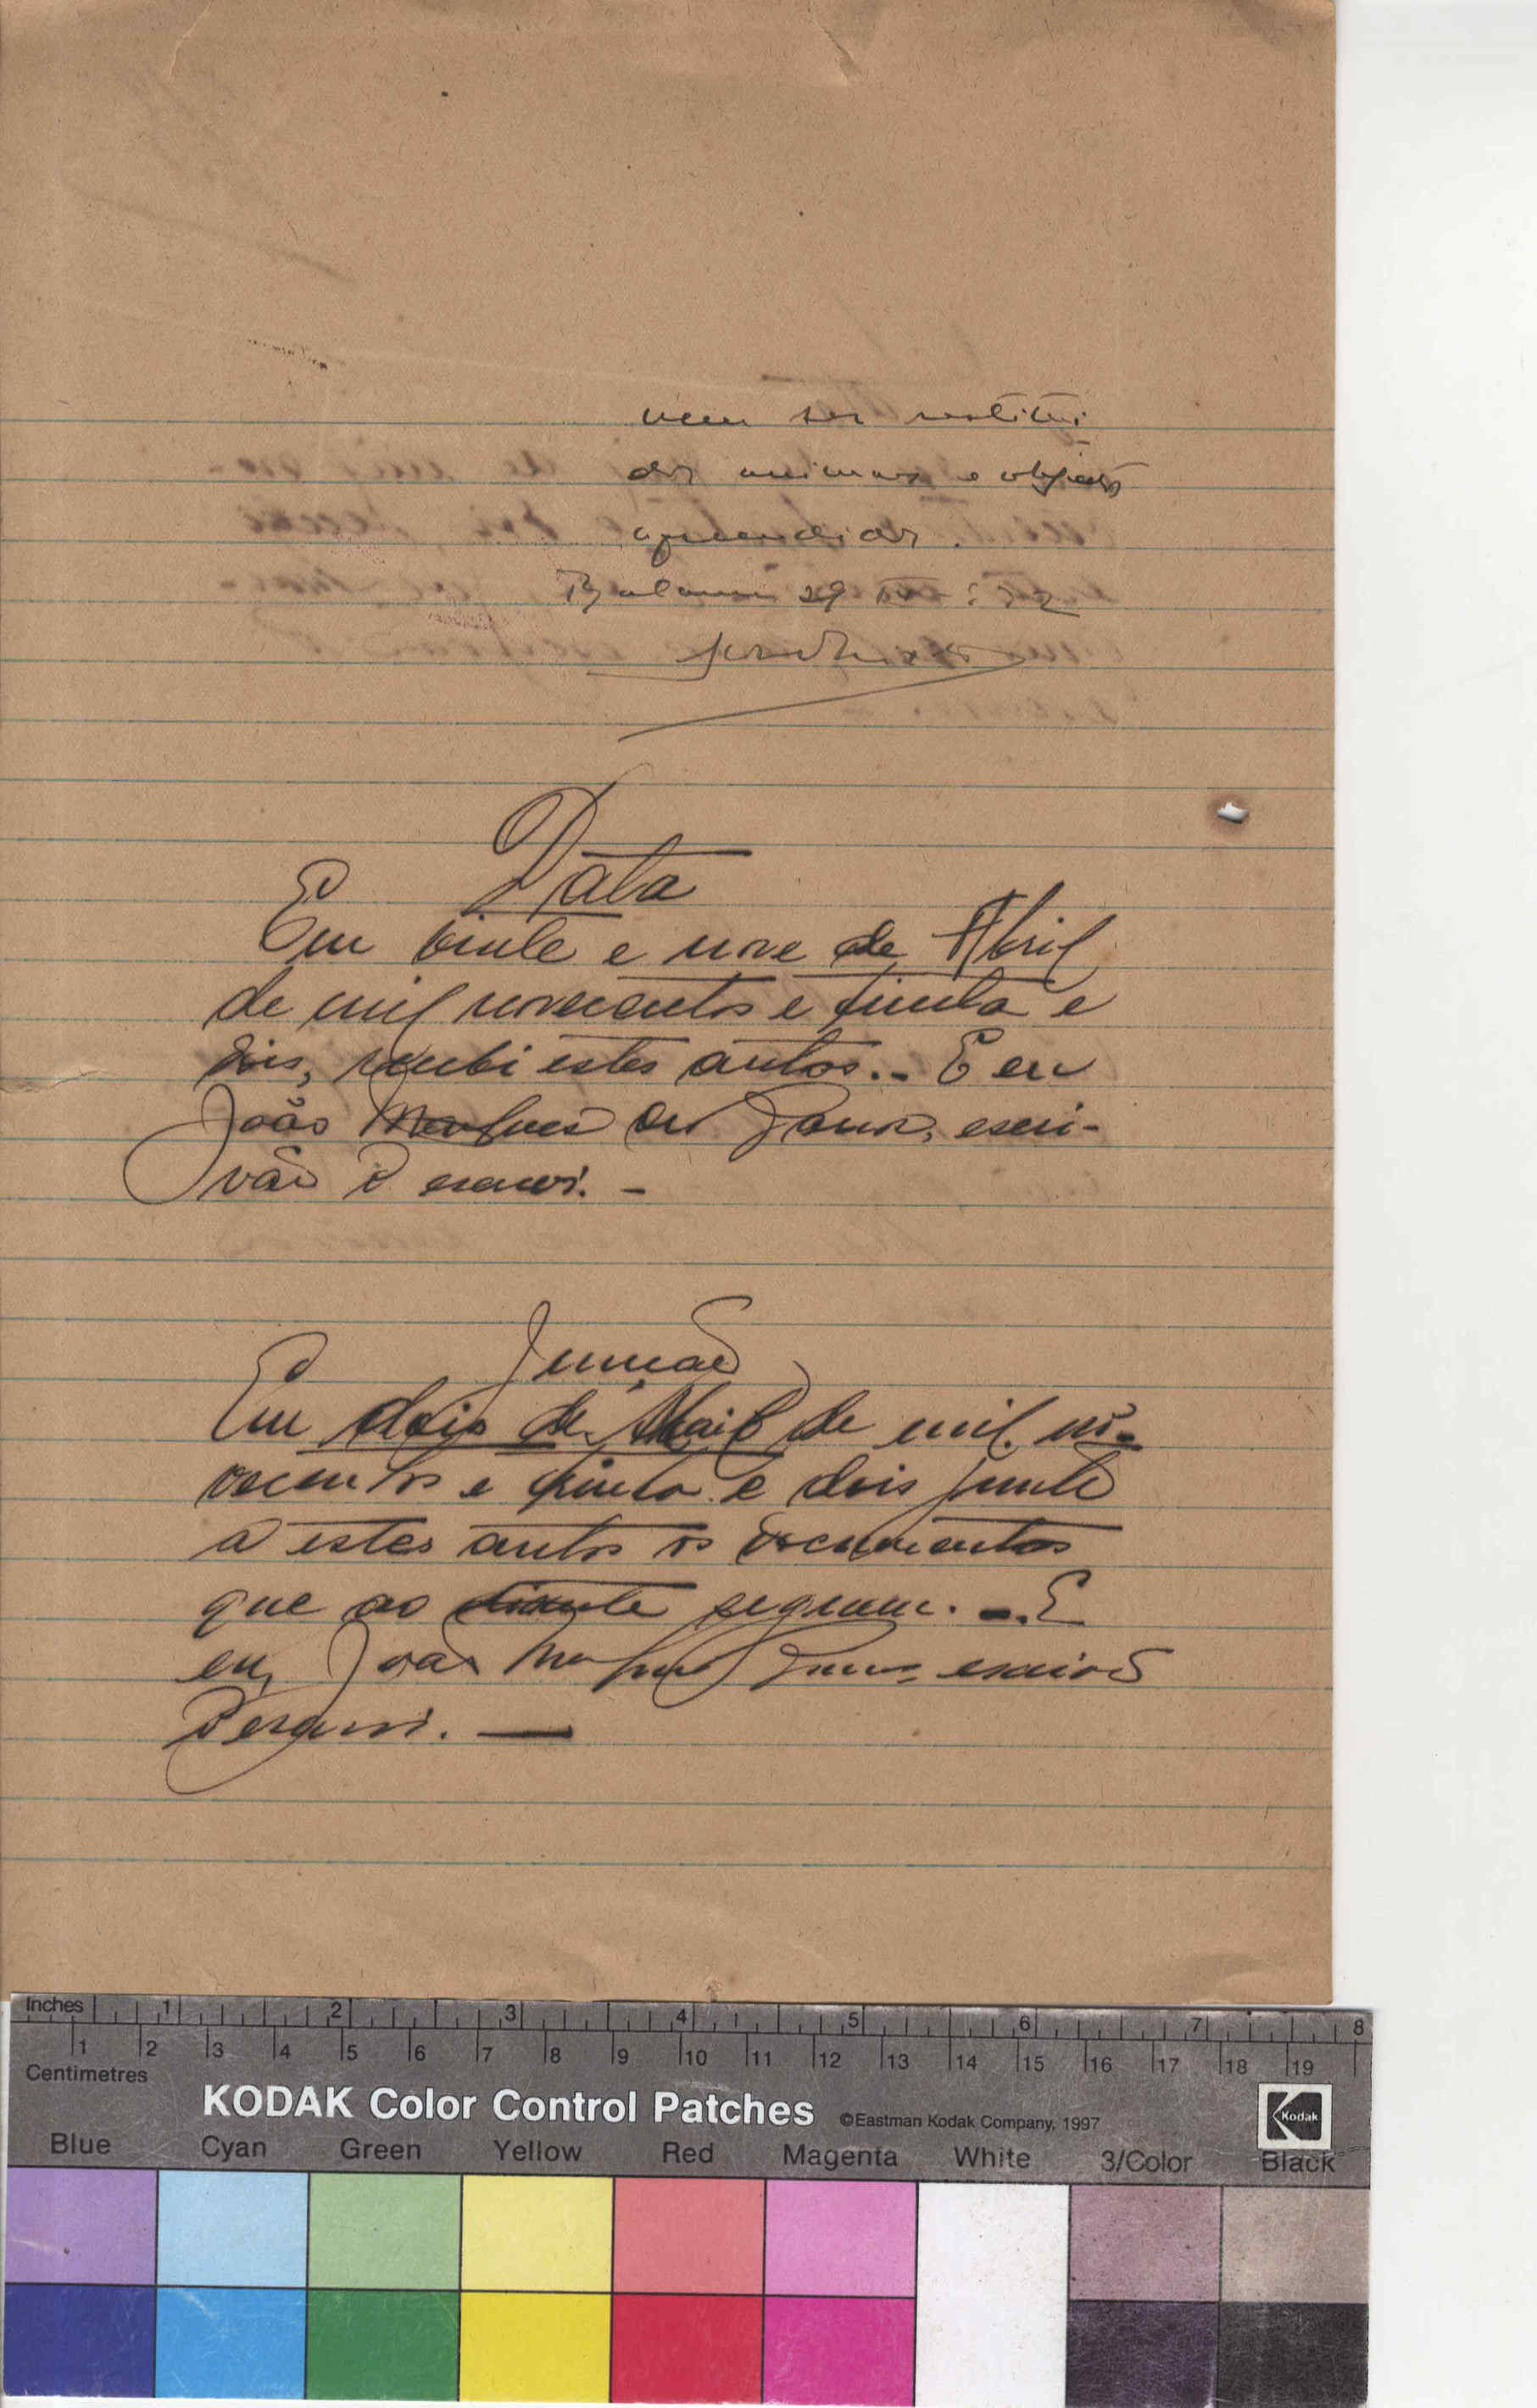 vem ser restitui
dos animaes e objectos
apreendidos.
29 IV 932
Data
Em vinte e nove de Abril
de mil novecentos e trinta e
dois, recebi estes autos. - E eu
João Marques de escri-
vão o escrevi. -
Juntada
Em dois de Maio de mil no-
vecentos e trinta e dois junto
a estes autos os documentos
que ao diante seguem. - E
eu, João Marques escrivão
o escrevi. —
Inches 1 2 3 4 5 6 7 8
1 2 3 4 5 6 7 8 9 10 11 12 13 14 15 16 17 18 19
Centimetres
KODAK Color Control Patches ©Eastman Kodak Company, 1997 Kodak
Blue Cyan Green Yellow Red Magenta White 3/Color Black